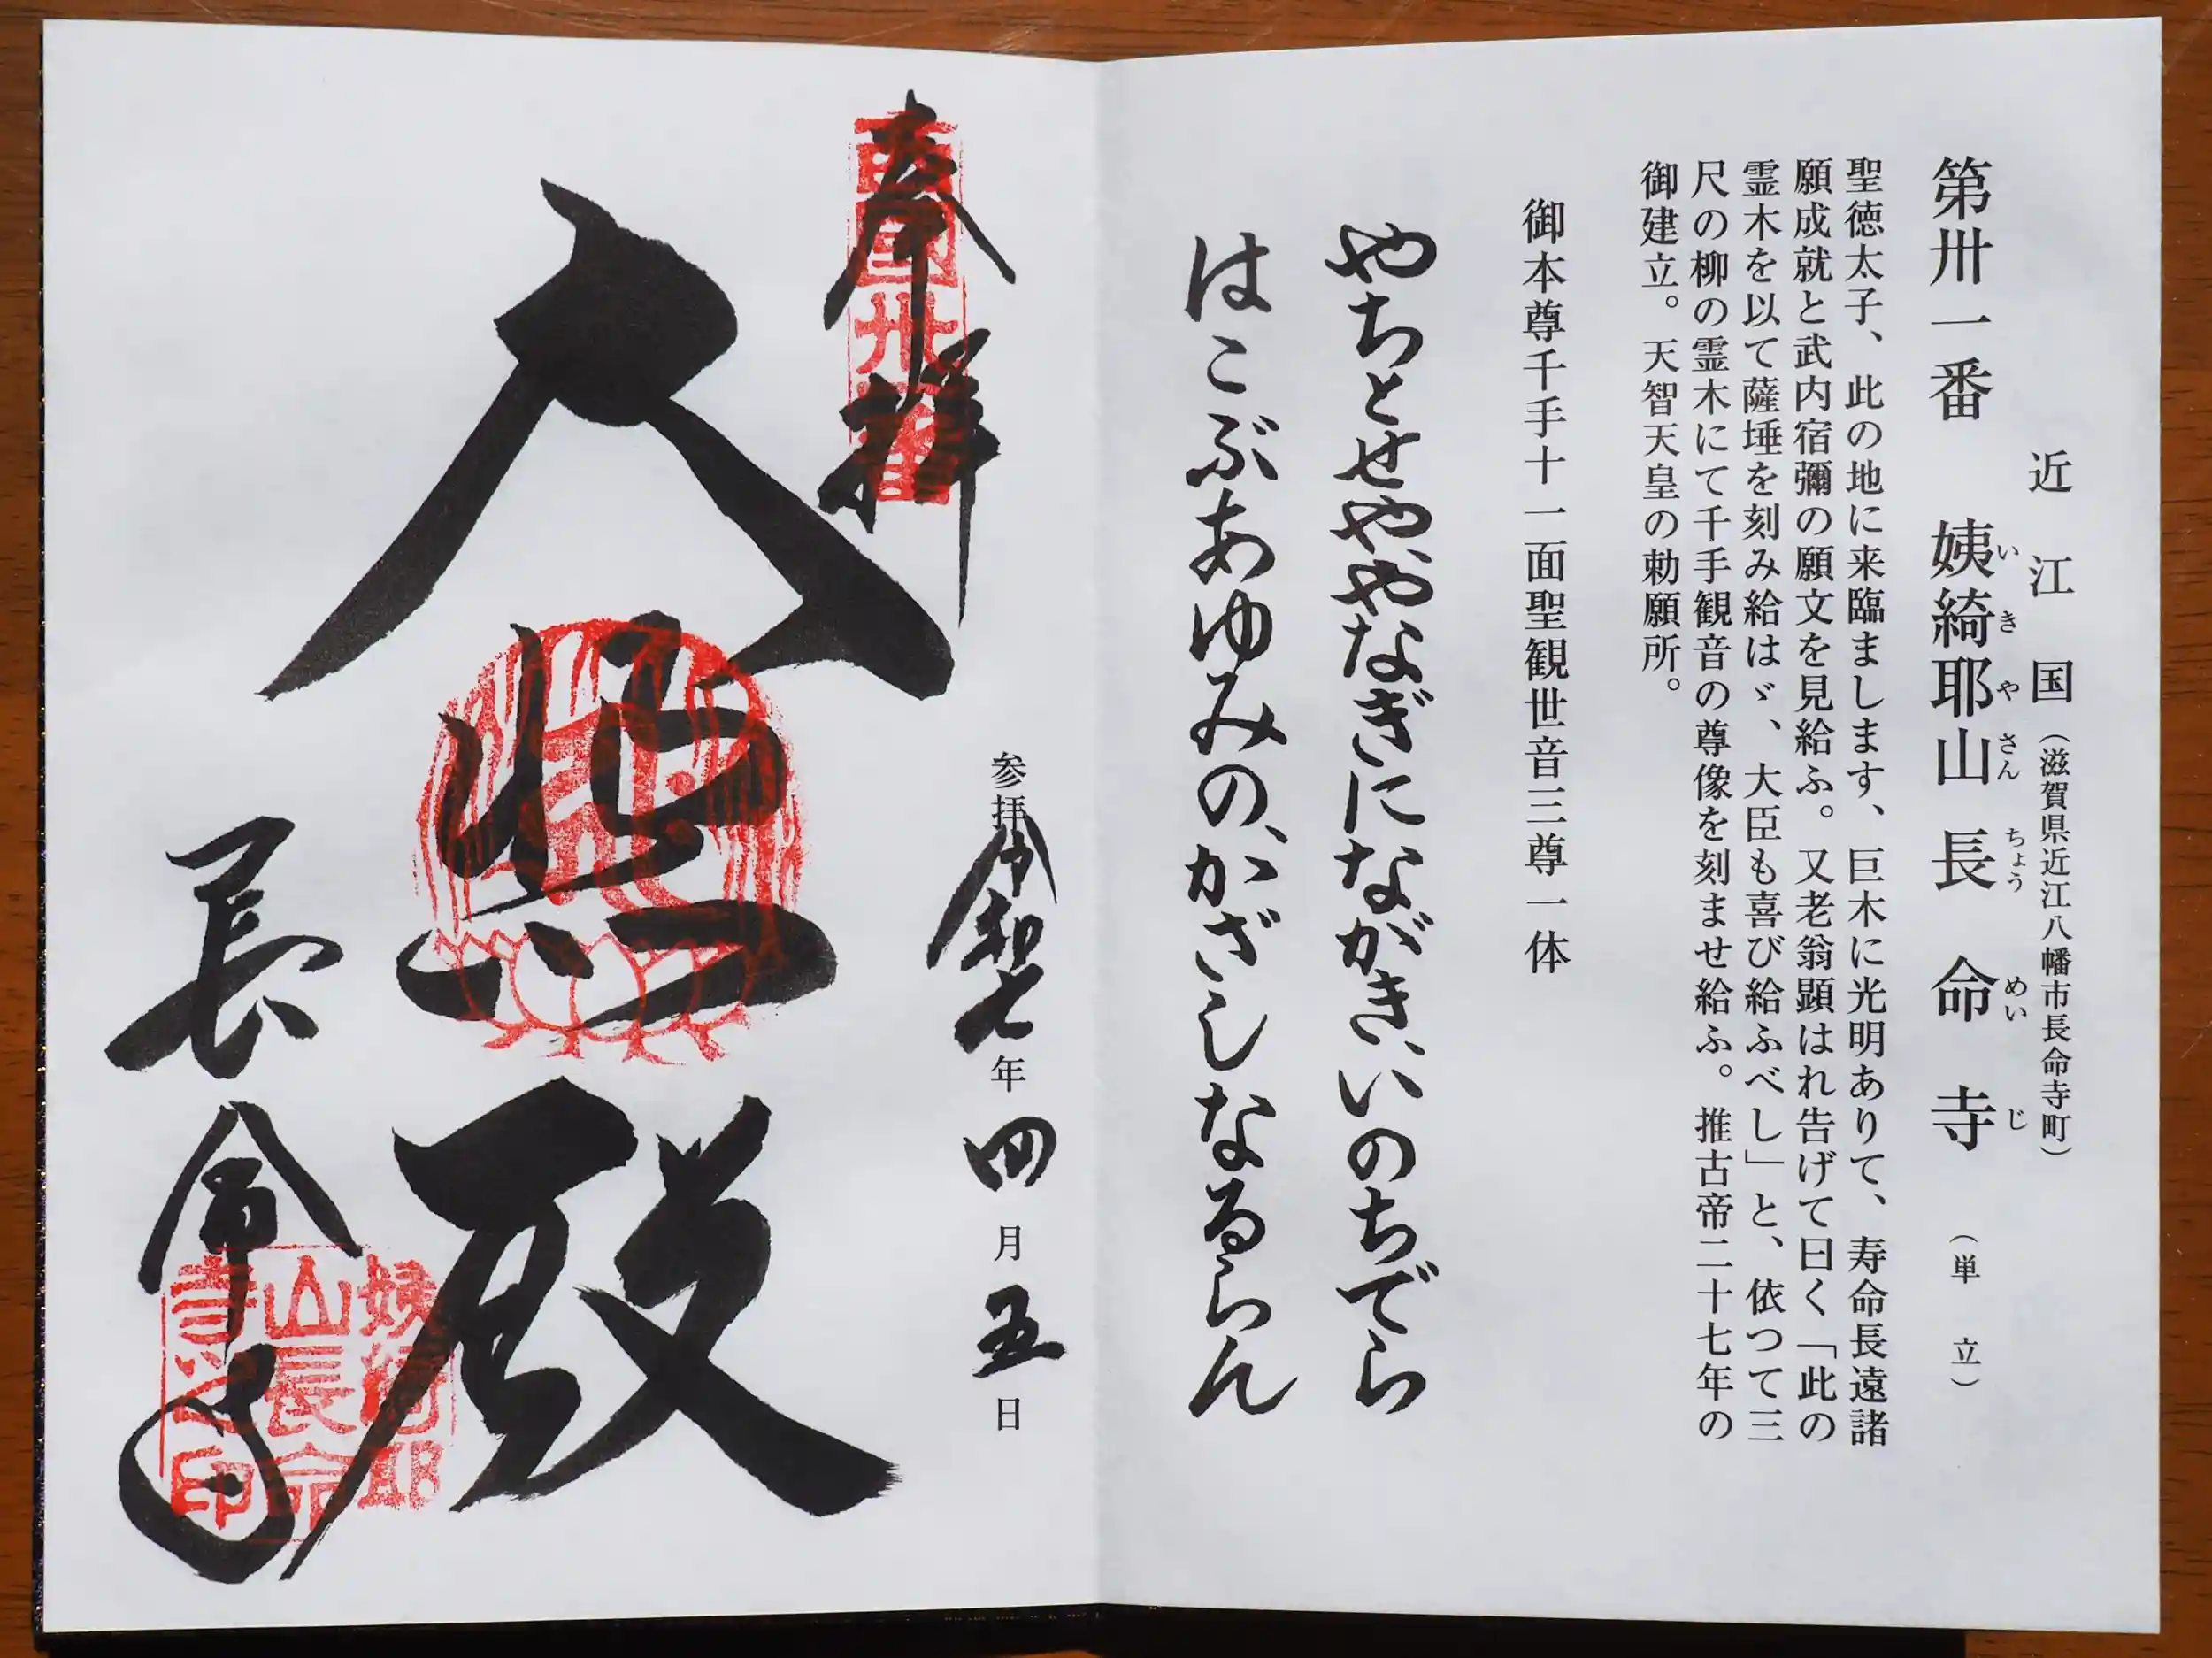 近江国（滋賀県近江八幡市長命寺町）
第卅一番 姨綺耶山 長命寺 （単立）
いきやさん ちょうめいじ
聖徳太子、此の地に来臨まします、巨木に光明ありて、寿命長遠諸
願成就と武内宿彌の願文を見給ふ。又老翁顕はれ告げて曰く「此の
霊木を以て薩埵を刻み給はゞ、大臣も喜び給ふべし」と、依つて三
尺の柳の霊木にて千手観音の尊像を刻ませ給ふ。推古帝二十七年の
御建立。天智天皇の勅願所。
御本尊千手十一面聖観世音三尊一体
やちとせや、やなぎにながき、いのちでら
はこぶあゆみの、かざしなるらん
奉拝
西国卅一番
参拝令和七年四月五日
大悲殿
長命寺
姨綺耶
山長命
寺之印